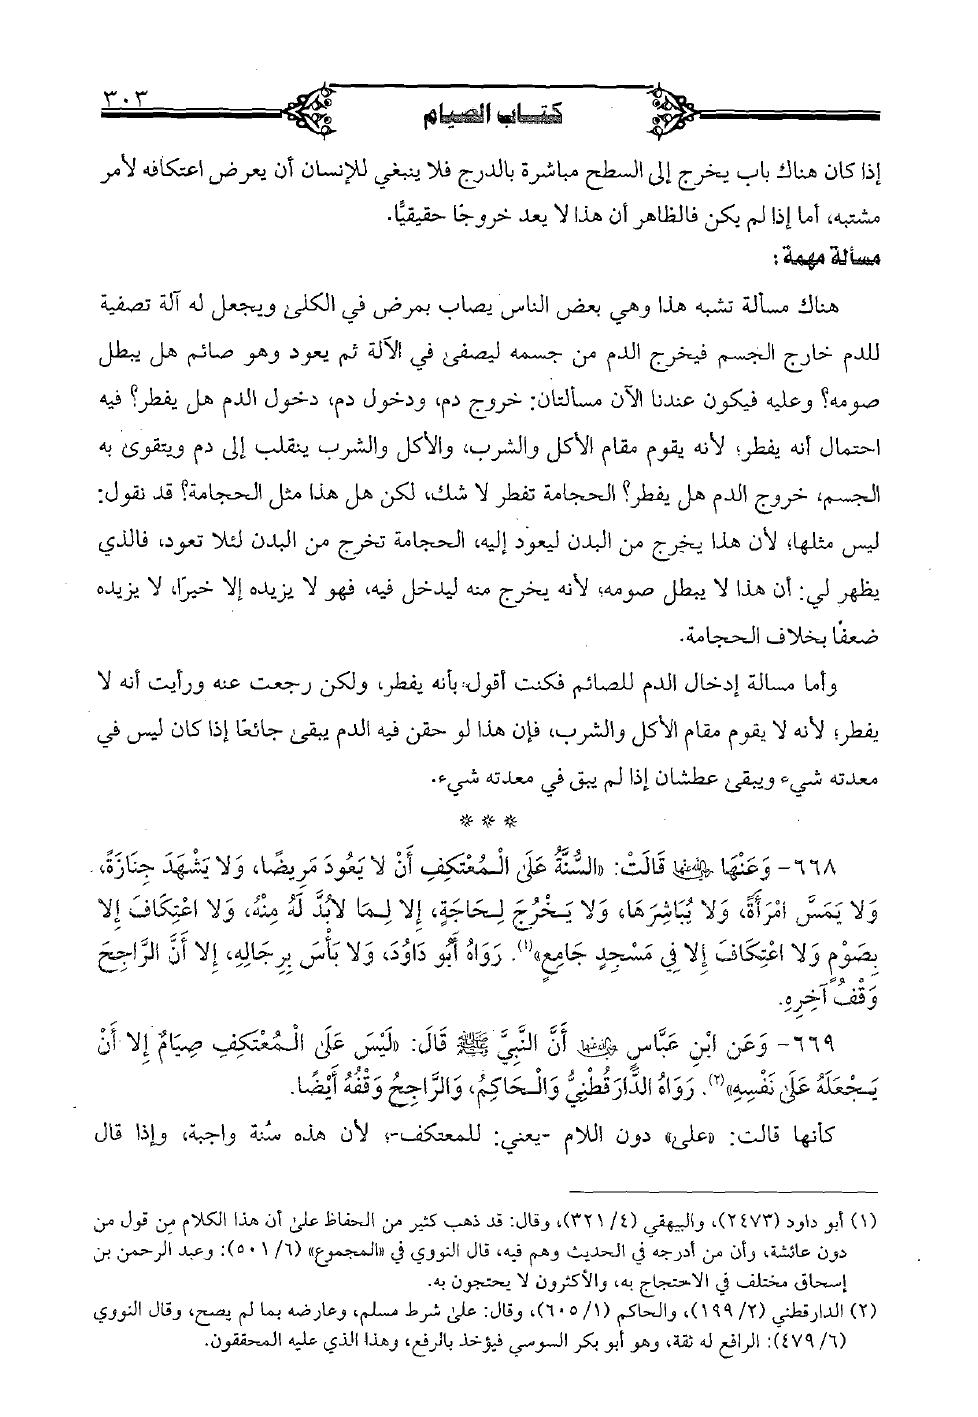 ٣٠٣
كتاب الصيام
إذا كان هناك باب يخرج إلى السطح مباشرة بالدرج فلا ينبغي للإنسان أن يعرض اعتكافه لأمر
مشتبه، أما إذا لم يكن فالظاهر أن هذا لا يعد خروجًا حقيقيًّا.
مسألة مهمة:
هناك مسألة تشبه هذا وهي بعض الناس يصاب بمرض في الكلى ويجعل له آلة تصفية
للدم خارج الجسم فيخرج الدم من جسمه ليصفى في الآلة ثم يعود وهو صائم هل يبطل
صومه؟ وعليه فيكون عندنا الآن مسألتان: خروج دم، ودخول دم، دخول الدم هل يفطر؟ فيه
احتمال أنه يفطر؛ لأنه يقوم مقام الأكل والشرب، والأكل والشرب ينقلب إلى دم ويتقوى به
الجسم، خروج الدم هل يفطر؟ الحجامة تفطر لا شك، لكن هل هذا مثل الحجامة؟ قد نقول:
ليس مثلها؛ لأن هذا يخرج من البدن ليعود إليه، الحجامة تخرج من البدن لئلا تعود، فالذي
يظهر لي: أن هذا لا يبطل صومه؛ لأنه يخرج منه ليدخل فيه، فهو لا يزيده إلا خيرًا، لا يزيده
ضعفًا بخلاف الحجامة.
وأما مسالة إدخال الدم للصائم فكنت أقول: بأنه يفطر، ولكن رجعت عنه ورأيت أنه لا
يفطر؛ لأنه لا يقوم مقام الأكل والشرب، فإن هذا لو حقن فيه الدم يبقى جائعًا إذا كان ليس في
معدته شيء ويبقى عطشان إذا لم يبق في معدته شيء.
* * *
٦٦٨- وَعَنْهَا رضي الله عنها قَالَتْ: «السُّنَّةُ عَلَى الْمُعْتَكِفِ أَنْ لَا يَعُودَ مَرِيضًا، وَلَا يَشْهَدَ جِنَازَةً،
وَلَا يَمَسَّ امْرَأَةً، وَلَا يُبَاشِرَهَا، وَلَا يَخْرُجَ لِحَاجَةٍ، إِلا لِمَا لَابُدَّ لَهُ مِنْهُ، وَلَا اعْتِكَافَ إِلا
بِصَوْمٍ وَلَا اعْتِكَافَ إِلا فِي مَسْجِدٍ جَامِعٍ»(١). رَوَاهُ أَبُو دَاوُدَ، وَلَا بَأْسَ بِرِجَالِهِ، إِلا أَنَّ الرَّاجِحَ
وَقْفُ آخِرِهِ.
٦٦٩- وَعَنِ ابْنِ عَبَّاسٍ رضي الله عنهما أَنَّ النَّبِيَّ ﷺ قَالَ: «لَيْسَ عَلَى الْمُعْتَكِفِ صِيَامٌ إِلا أَنْ
يَجْعَلَهُ عَلَى نَفْسِهِ»(٢). رَوَاهُ الدَّارَقُطْنِيُّ وَالْحَاكِمُ، وَالرَّاجِحُ وَقْفُهُ أَيْضًا.
كأنها قالت: «على» دون اللام -يعني: للمعتكف-؛ لأن هذه سُنة واجبة، وإذا قال
(١) أبو داود (٢٤٧٣)، والبيهقي (٤/ ٣٢١)، وقال: قد ذهب كثير من الحفاظ على أن هذا الكلام مِن قول من
دون عائشة، وأن من أدرجه في الحديث وهم فيه، قال النووي في «المجموع» (٦/ ٥٠١): وعبد الرحمن بن
إسحاق مختلف في الاحتجاج به، والأكثرون لا يحتجون به.
(٢) الدارقطني (٢/ ١٩٩)، والحاكم (١/ ٦٠٥)، وقال: على شرط مسلم، وعارضه بما لم يصح، وقال النووي
(٦/ ٤٧٩): الرافع له ثقة، وهو أبو بكر السوسي فيؤخذ بالرفع، وهذا الذي عليه المحققون.